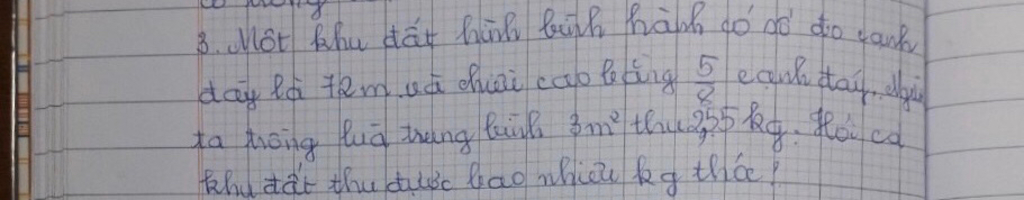 3. Một khu đất hình bình hành có độ dài cạnh
đáy là 72m và chiều cao bằng 5/8 cạnh đáy. Người
ta trồng luá trung bình 3m² thu 2,55 kg. Hỏi cả
khu đất thu được bao nhiêu kg thóc?